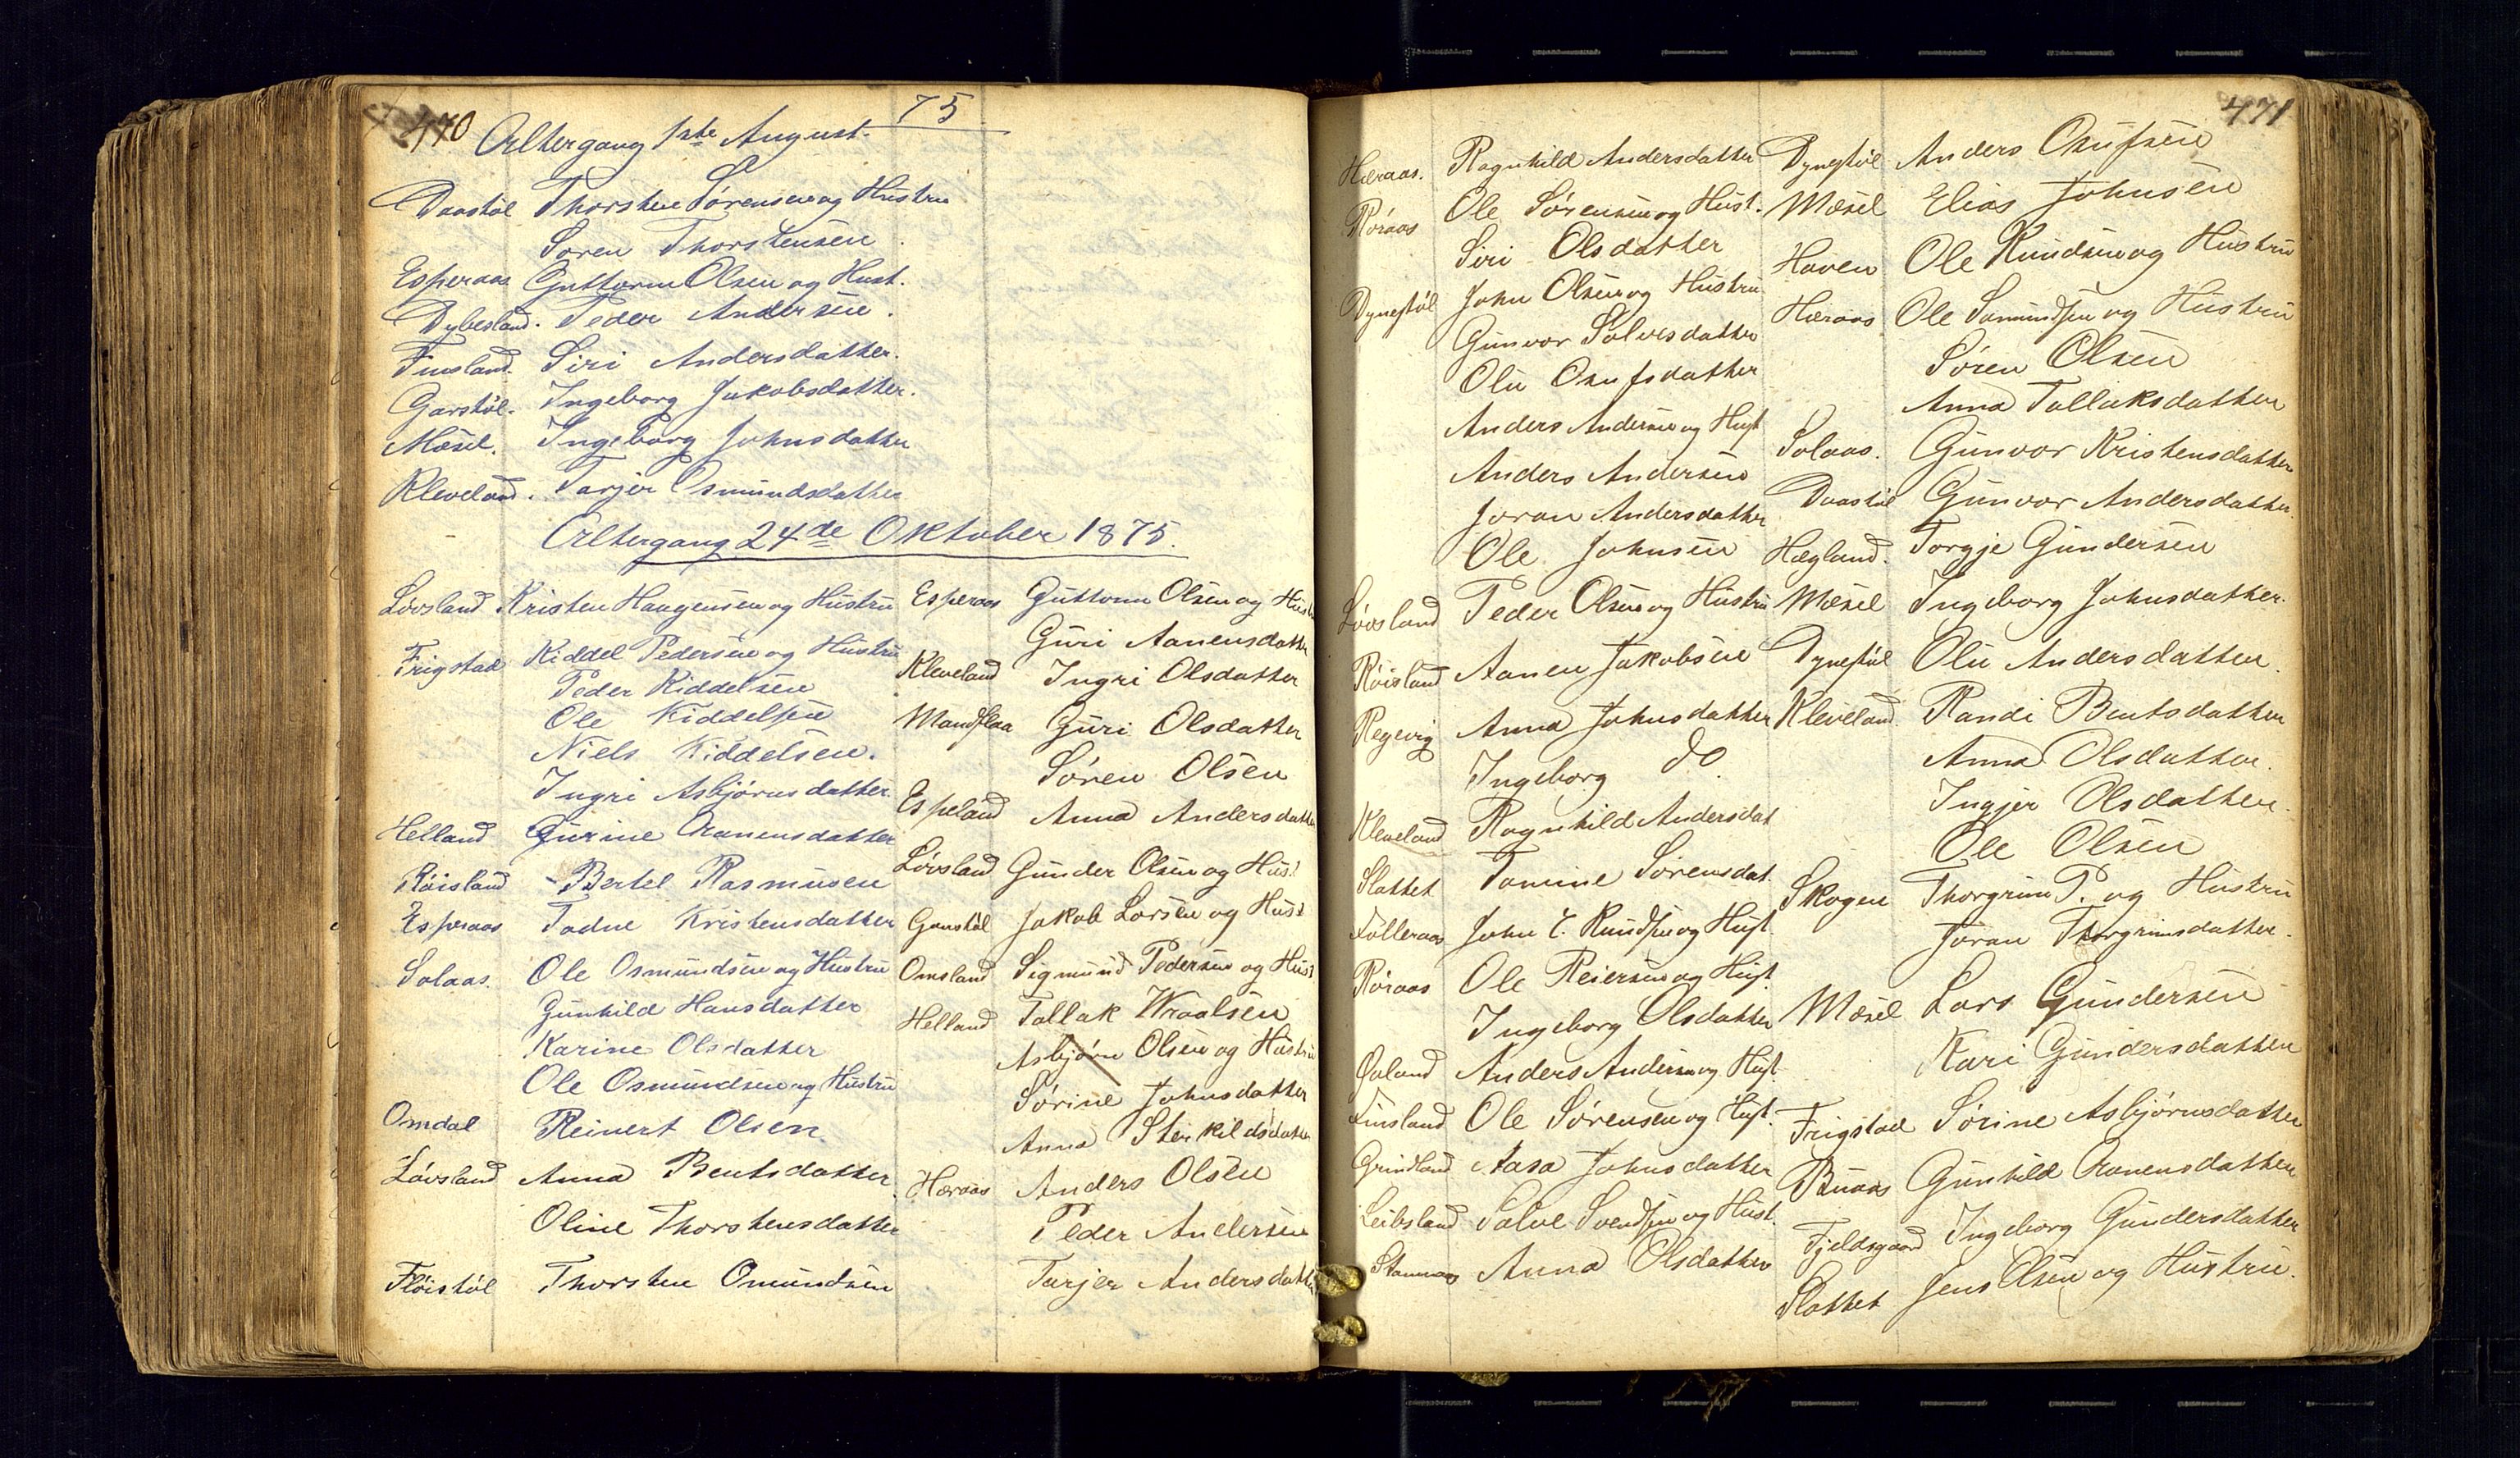 470 Altergang 1ste August 75
Daastøl Thorsten Sørensen og Hustru
Soren Thorstensen
Esperaas Guttorm Olsen og Hust.
Dybesland. Peder Andersen.
Finsland. Siri Andersdatter.
Garstøl. Ingeborg Jakobsdatter.
Mæsel. Ingeborg Johnsdatter
Kleveland. Tarjer Osmundsdatter
Altergang 24de Oktober 1875.
Lövsland Kristen Haagensen og Hustru
Frigstad Kiddel Pedersen og Hustru
Peder Kiddelsen
Ole Kiddelsen
Niels Kiddelsen.
Ingri Asbjørnsdatter
Helland Gurine Aanensdatter
Röisland Bertel Rasmusen
Esperaas Todne Kristensdatter
Solaas. Ole Osmundsen og Hustru
Gunhild Hansdatter
Karine Olsdatter
Ole Osmundsen og Hustru
Omdal Reinert Olsen
Lövsland Anna Bentsdatter
Oline Thorstensdatter
Flöistöl Thorsten Omundsen
Esperaas Guttorm Olsen og Hustru
Guri Aanensdatter
Kleveland Ingri Olsdatter
Mandflaa Guri Olsdatter
Søren Olsen
Espeland Anna Andersdatter
Lövsland Gunder Olsen og Hust
Garstöl Jakob Larsen og Hust
Omsland Sigmund Pedersen og Hust
Helland Tallak Wraalsen
Asbjørn Olsen og Hustru
Sørine Johnsdatter
Anna Sterkildsdatter
Hæraas Anders Olsen
Peder Andersen
Tarjer Andersdatter
471
Hæraas. Ragnhild Andersdatter
Röraas Ole Sørensen og Hust.
Siri Olsdatter
Dynestöl John Olsen og Hustru
Gunvor Salvesdatter
Olu Onufsdatter
Anders Andersen og Hust
Anders Andersen
Joran Andersdatter
Ole Johnsen
Lövsland Peder Olsen og Hustru
Röisland Aanen Jakobsen
Regevig Anna Johnsdatter
Ingeborg do.
Kleveland Ragnhild Andersdat
Slattet Tomine Sørensdat.
Folleraas John T. Knudsen og Hust.
Röraas Ole Reiersen og Hust.
Ingeborg Olsdatter
Øvland Anders Andersen og Hust.
Finsland Ole Sørensen og Hust.
Grindland Aasa Johnsdatter
Leibsland Salve Svendsen og Hust.
Anna Olsdatter
Dynestöl Anders Onufsen
Mæsel Elias Johnsen
Haven Ole Knudsen og Hustru
Hæraas Ole Samundsen og Hustru
Søren Olsen
Anna Tallaksdatter
Solaas. Gunvor Kristensdatter
Daastöl Gunvor Andersdatter.
Hægland. Torgje Gundersen
Mæsel Ingeborg Johnsdatter.
Dynestöl Olu Andersdatter.
Kleveland. Randi Bentsdatter
Anna Olsdatter.
Ingjer Olsdatter.
Ole Olsen
Skogen Thorgrim P. og Hustru
Joran Thorgrimsdatter.
Mæsel Lars Gundersen
Kari Gundersdatter
Frigstad Sörine Asbjørnsdatter
Buaas Gunhild Aanensdatter
Fjeldsgaard Ingeborg Gundersdatter
Slattet Jens Olsen og Hustru.